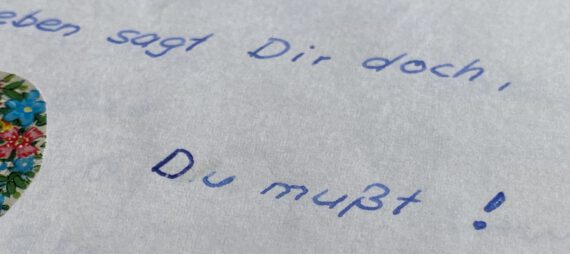 eben sagt Dir doch,
Du mußt !